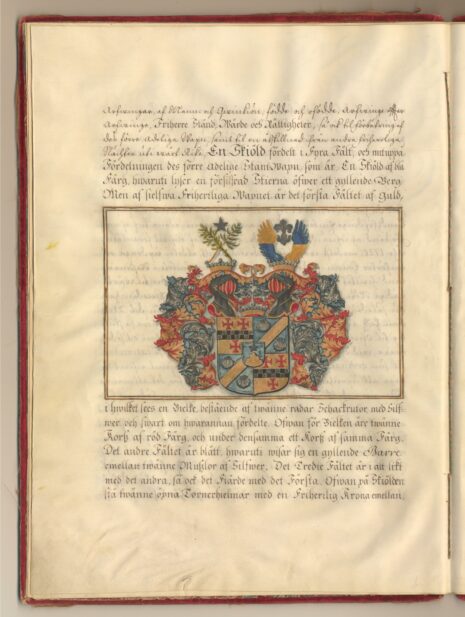 Arfwingar, af Mann och Qwinkiön, födde och ofödde, Arfwinge efter
Arfwinge, Friherre Stånd, Wärde och Rättigheter, så ock til förbätring af
des förre Adelige Wapn, samt til en åtskillnad ifrån andra friherrliga
i wårt Rike, En Skiöld fördelt i Fyra Fält, och mituppå
Fördelningen des förre Adelige Stam Wapn, som är. En Skiöld af blå
Färg, hwaruti lyser en försilfrad Stierna öfwer ett gyllende Berg.
Men af sielfwa Friherrliga Wapnet är det första Fältet af Guld,
i hwilket sees en Bielke, bestående af twänne radar Schackrutor, med Silf-
wer och swart om hwarannan fördelte. Ofwan för Bielken äre twänne
Korß af röd Färg, och under densamma ett Korß af samma Färg.
Det andre Fältet är blått, hwaruti wisar sig en gyllende Barre
emellan twänne Mußlor af Silfwer. Det Tredie Fältet är i alt likt
med det andra, så ock det Fiärde med det Första. Ofwan på Skiölden
stå twänne öpna Tornerhielmar med en Friherrlig Krona emellan,